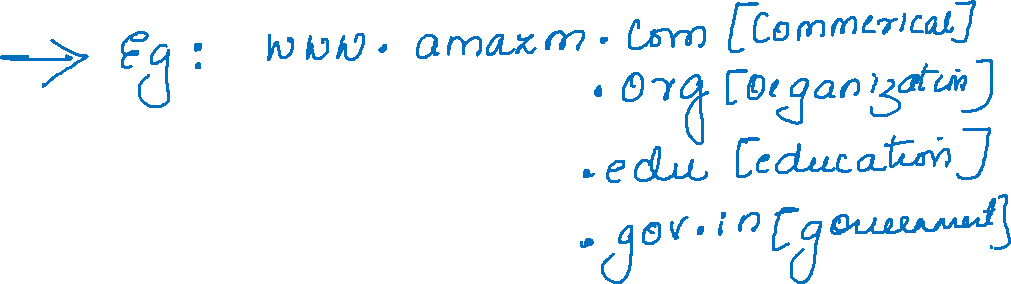 → Eg: www.amazon.com [Commerical]
.org [organization]
.edu [education]
.gov.in [government]